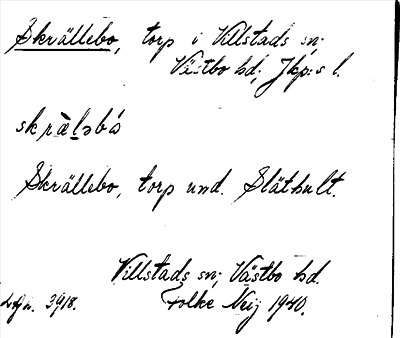 Skrällebo, torp i Villstads sn;
Västbo hd; Jkp:s l.
skràl̥əbó
Skrällebo, torp und. Släthult.
Villstads sn; Västbo hd.
3918. Folke Neij 1940.